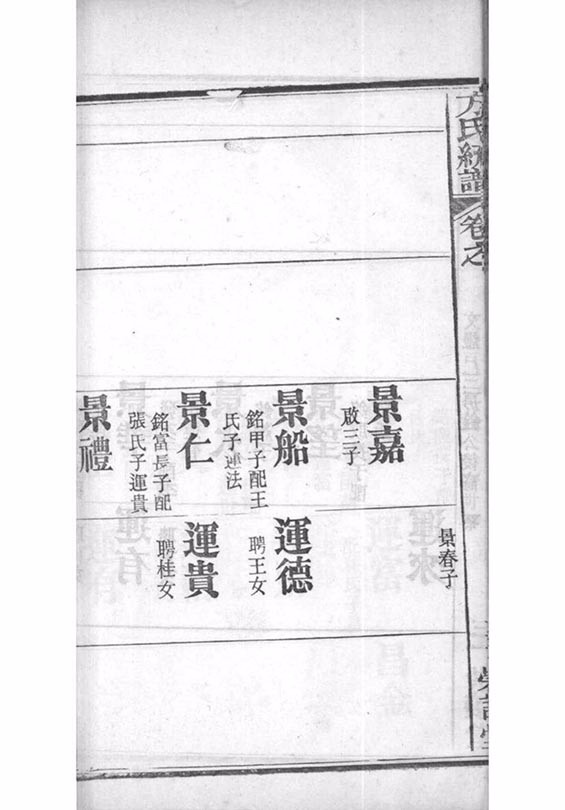 方氏統譜
卷之
景嘉
啟三子
景船
銘甲子配王
氏子運法
景仁
銘富長子配
張氏子運貴
景禮
景春子
運德
聘王女
運貴
聘桂女